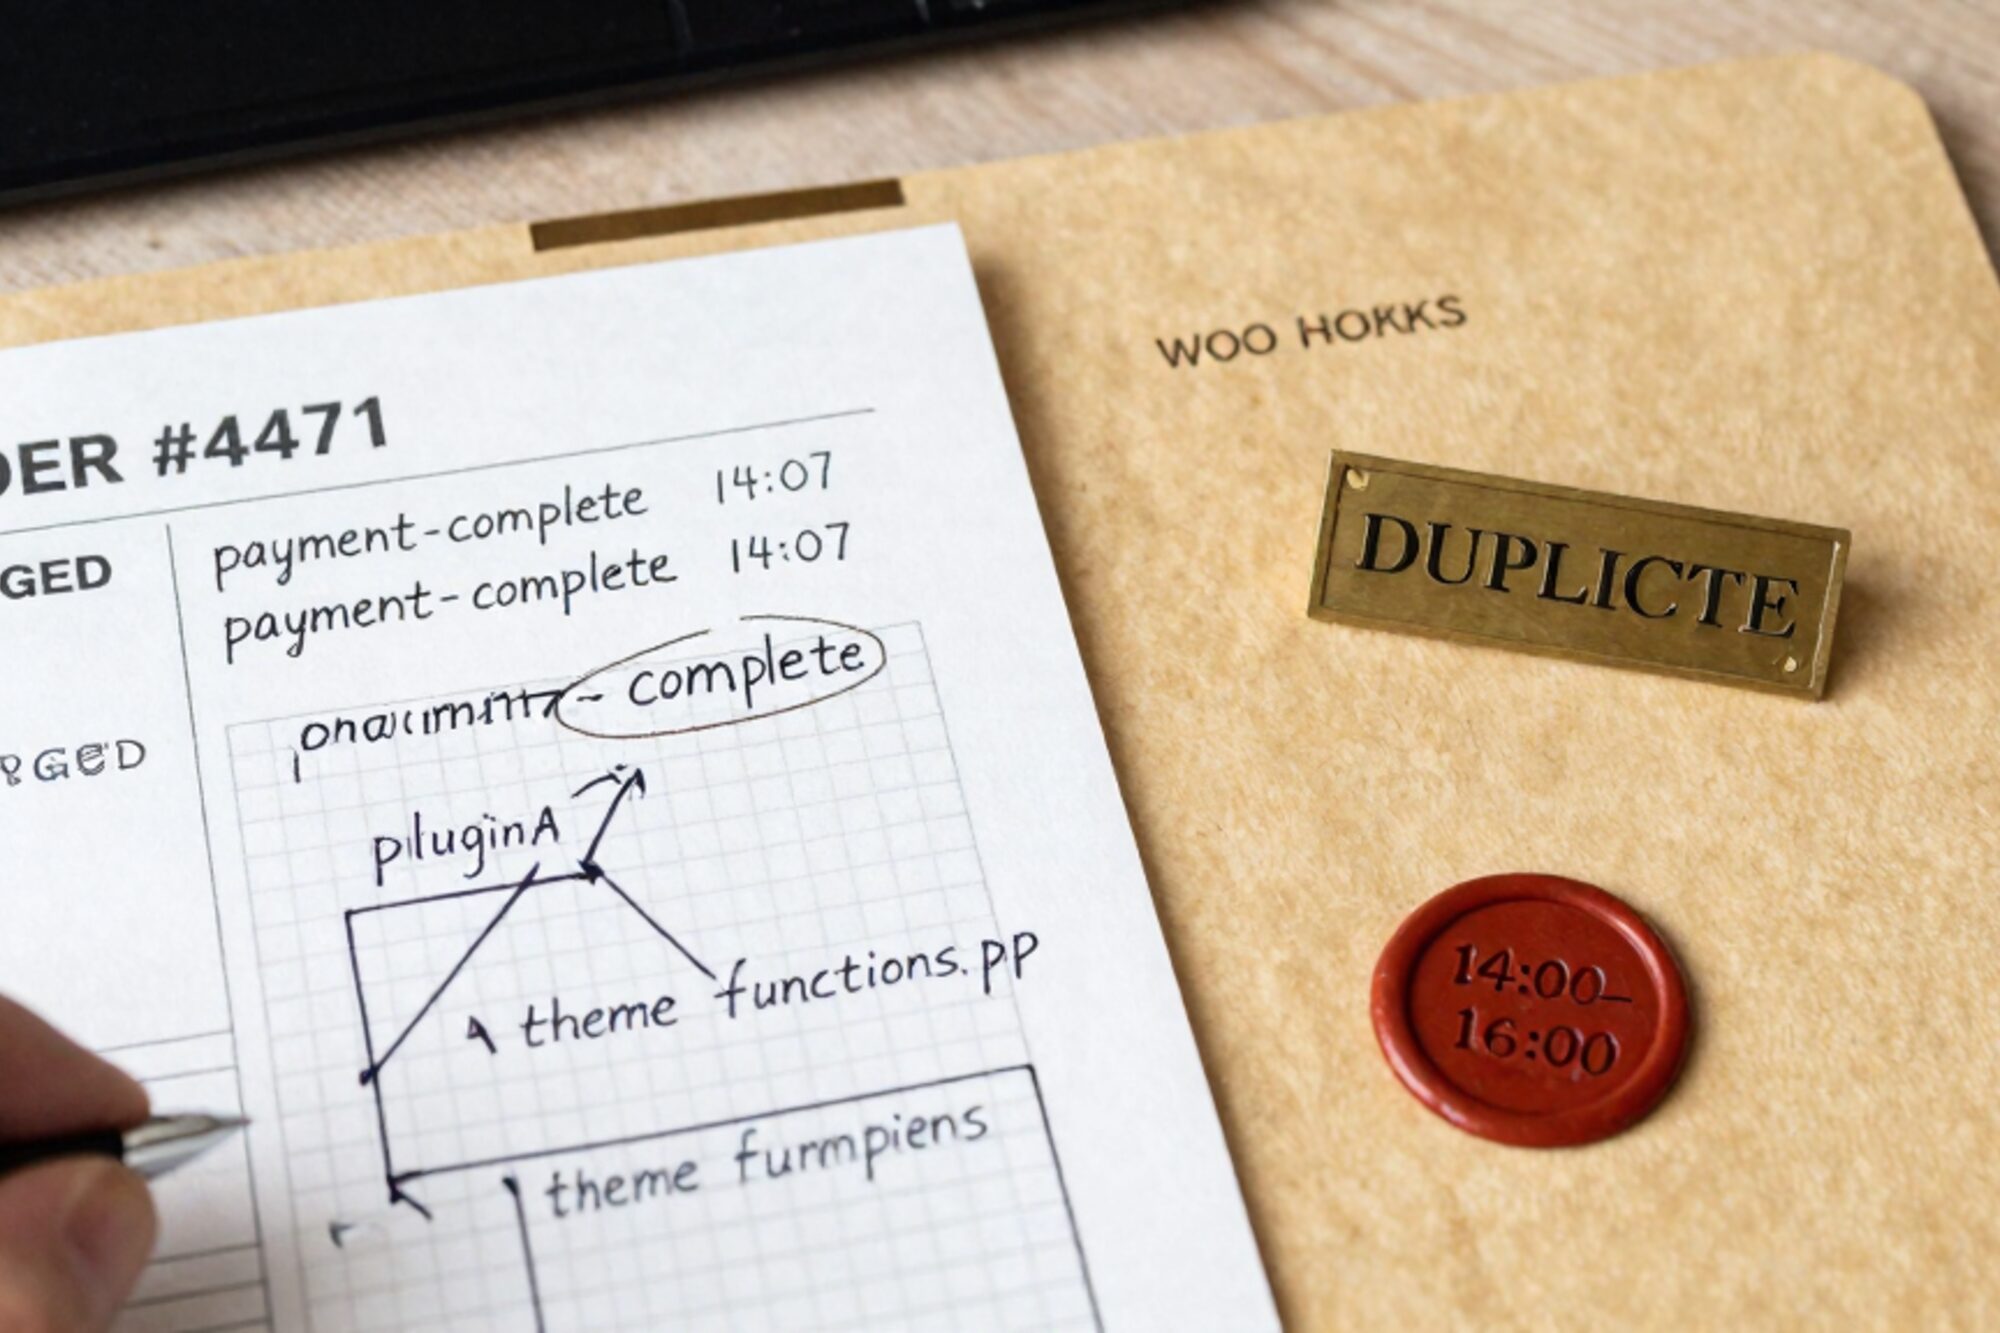 DER #4471
GED
payment-complete 14:07
payment-complete 14:07
- complete
pluginA
theme functions.pp
theme furmpiens
WOO HOKKS
DUPLICTE
14:00–
16:00